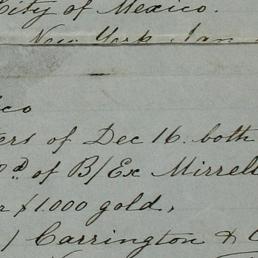 City of Mexico.
New York Jan
ico
ers of Dec 16. both
of B/Ex Mirrell
$1.000 gold,
Carrington &